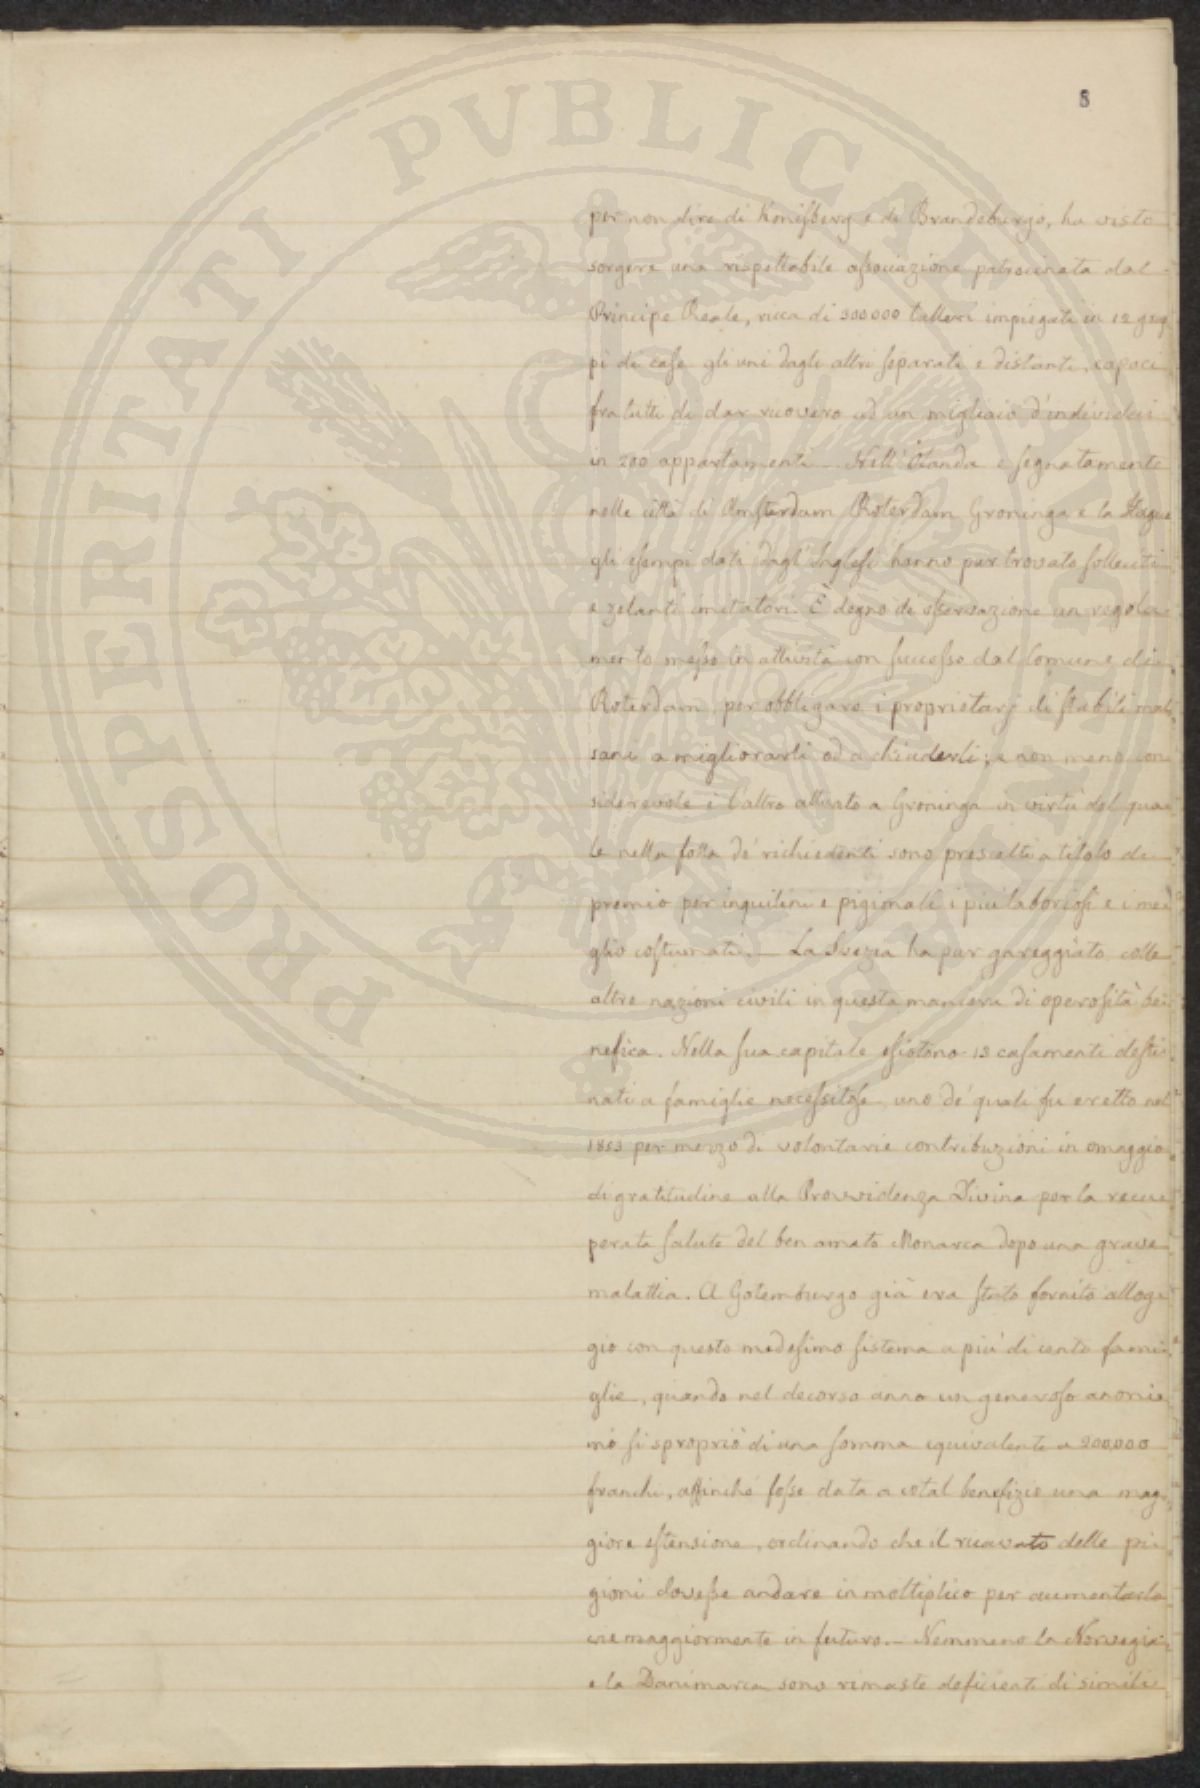 PROSPERITATI PVBLICAE AVGENDAE
8
per non dire di Konisberg e di Brandeburgo, ha visto
sorgere una rispettabile associazione patrocinata dal
Principe Reale, ricca di 300000 talleri impiegati in 12 grup
pi di case gli uni dagli altri separati e distanti, capaci
fra tutti di dar ricovero ad un migliaio d'individui
in 200 appartamenti _ Nell'Olanda e segnatamente
nelle città di Amsterdam Roterdam Groninga e la Hague
gli esempi dati dagl'Inglesi hanno pur trovato solleciti
e zelanti imitatori. È degno di osservazione un regola
mento messo in attività con successo dal Comune di
Roterdam per obbligare i proprietarj di stabili mal
sani a migliorarli od a chiuderli; e non meno con
siderevole è l'altro attivato a Groninga in virtù del qua
le nella folla de' richiedenti sono prescelti a titolo di
premio per inquilini e pigionali i più laboriosi e i me
glio costumati. _ La Svezia ha pur gareggiato colle
altre nazioni civili in questa maniera di operosità be
nefica. Nella sua capitale esistono 13 casamenti desti
nati a famiglie necessitose, uno de' quali fu eretto nel
1853 per mezzo di volontarie contribuzioni in omaggio
di gratitudine alla Provvidenza Divina per la recu
perata salute del ben amato Monarca dopo una grave
malattia. A Gotemburgo già era stato fornito allog
gio con questo medesimo sistema a più di cento fami
glie, quando nel decorso anno un generoso anoni
mo si spropriò di una somma equivalente a 200,000
franchi, affinché fosse data a cotal benefizio una mag
giore estensione, ordinando che il ricavato delle pi
gioni dovesse andare in moltiplico per aumentarlo
vie maggiormente in futuro. _ Nemmeno la Norvegia
e la Danimarca sono rimaste deficienti di simili